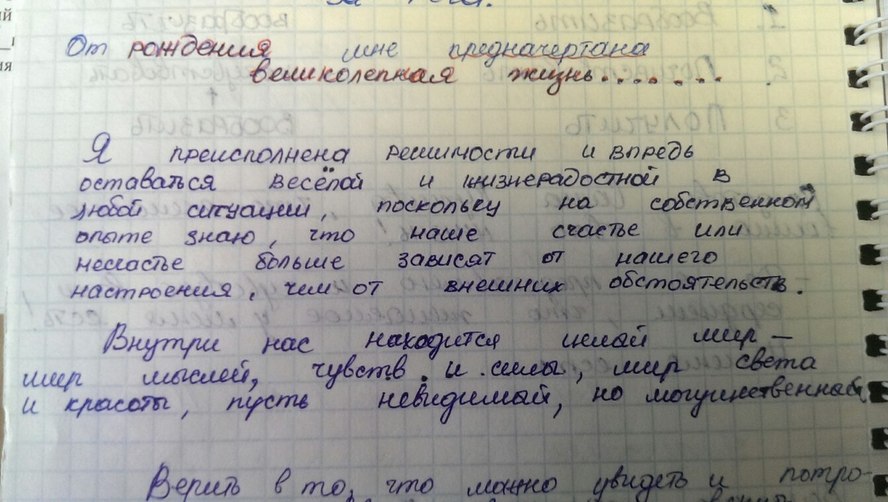 От рождения мне предначертана
великолепная жизнь.......
Я преисполнена решимости и впредь
оставаться весёлой и жизнерадостной в
любой ситуации, поскольку на собственном
опыте знаю, что наше счастье или
несчастье больше зависят от нашего
настроения, чем от внешних обстоятельств.
Внутри нас находится целый мир -
мир мыслей, чувств и силы, мир света
и красоты, пусть невидимый, но могущественный,
Верить в то, что можно увидеть и потро-